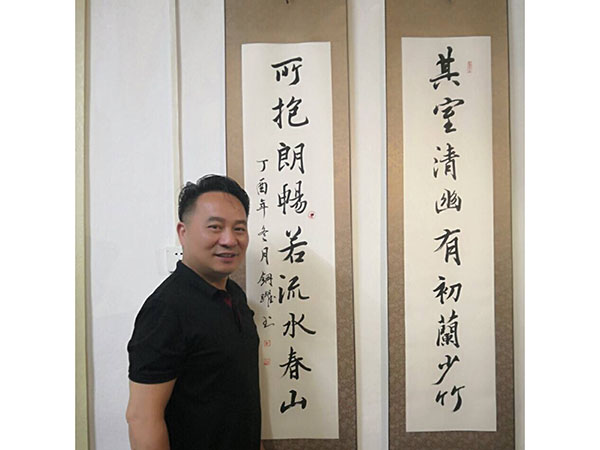 其室清幽有初蘭少竹
所抱朗暢若流水春山
丁酉年冬月